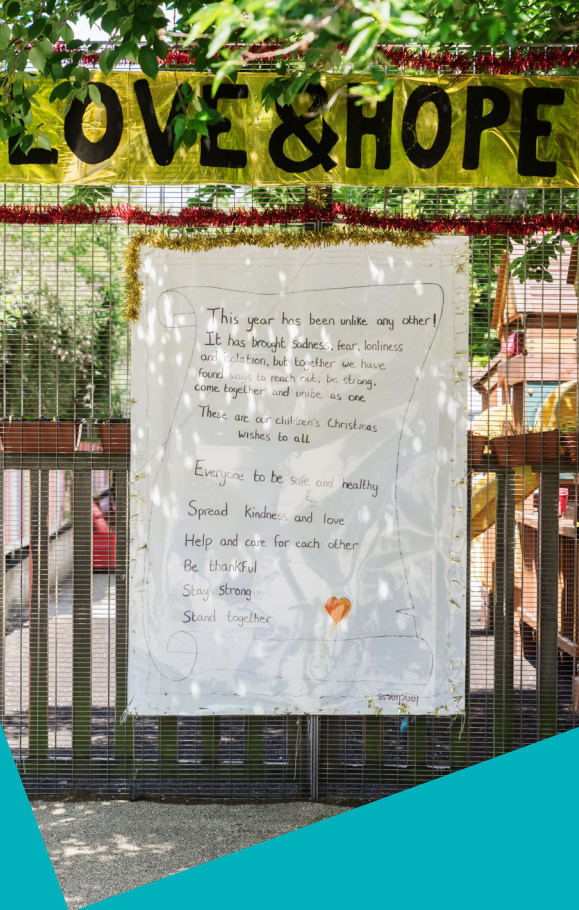 LOVE & HOPE
This year has been unlike any other!
It has brought sadness, fear, lonliness
and isolation, but together we have
found ways to reach out, be strong,
come together and unite as one
These are our children's Christmas
wishes to all
Everyone to be safe and healthy
Spread kindness and love
Help and care for each other
Be thankful
Stay Strong
Stand together
lonelines